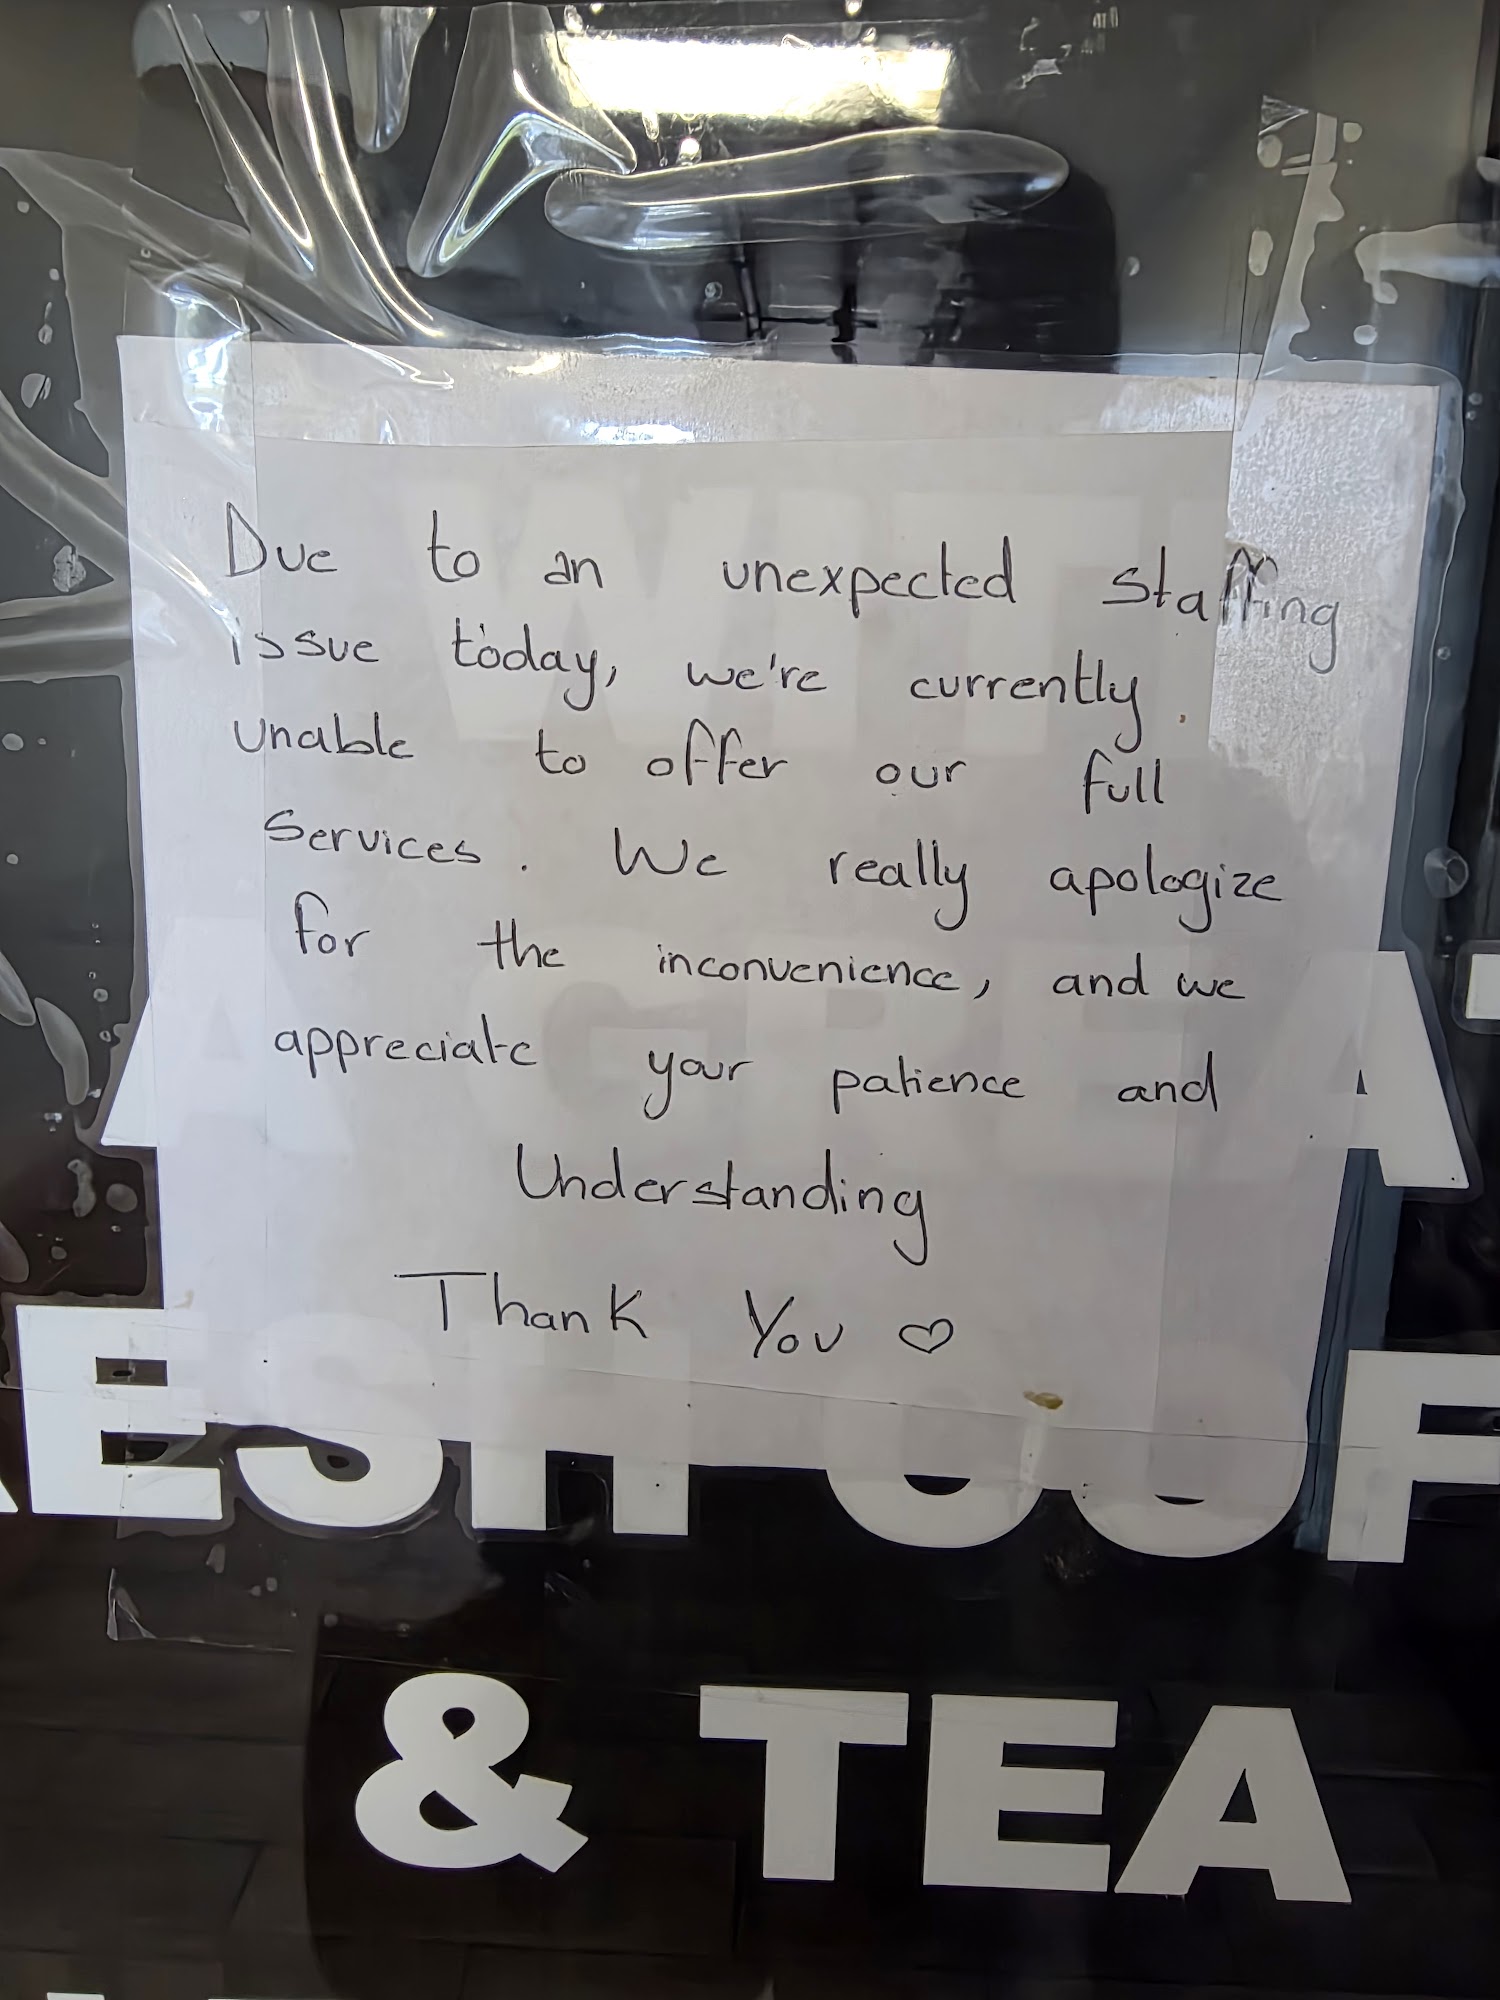 Due to an unexpected staffing
issue today, we're currently
unable to offer our full
Services. We really apologize
for the inconvenience, and we
appreciate your patience and
Understanding
Thank You ♡
& TEA